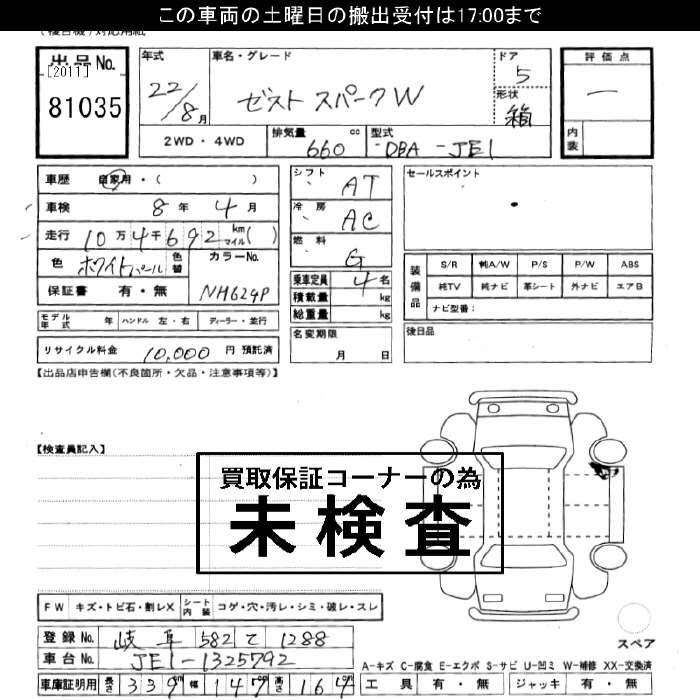 この車両の土曜日の搬出受付は17:00まで
出品No. [2011] 81035
年式 22/8月
車名・グレード ゼスト スパークW
ドア 5
形状 箱
評価点 —
内装
2WD・4WD
排気量 660 cc
型式 DBA - JE1
車歴 自家用・( )
車検 8年 4月
走行 10万4千692 km マイル( )
色 ホワイトパール 色替
カラーNo. NH624P
保証書 有・無
モデル年式 年 ハンドル 左・右 ディーラー・並行
リサイクル料金 10,000 円 預託済
シフト AT
冷房 AC
燃料 G
乗車定員 4名
積載量 kg
総重量 kg
名変期限 月 日
セールスポイント
装備品
S/R 純A/W P/S P/W ABS
純TV 純ナビ 革シート 外ナビ エアB
ナビ型番:
後日品
【出品店申告欄(不良箇所・欠品・注意事項等)】
【検査員記入】
買取保証コーナーの為
未検査
FW キズ・トビ石・割レX シート内装 コゲ・穴・汚レ・シミ・破レ・スレ
登録No. 岐阜 582 て 1288
車台No. JE1-1325792
車庫証明用 長さ 339 幅 147 高さ 164
スペア
A-キズ C-腐食 E-エクボ S-サビ U-凹ミ W-補修 XX-交換済
工具 有・無 ジャッキ 有・無